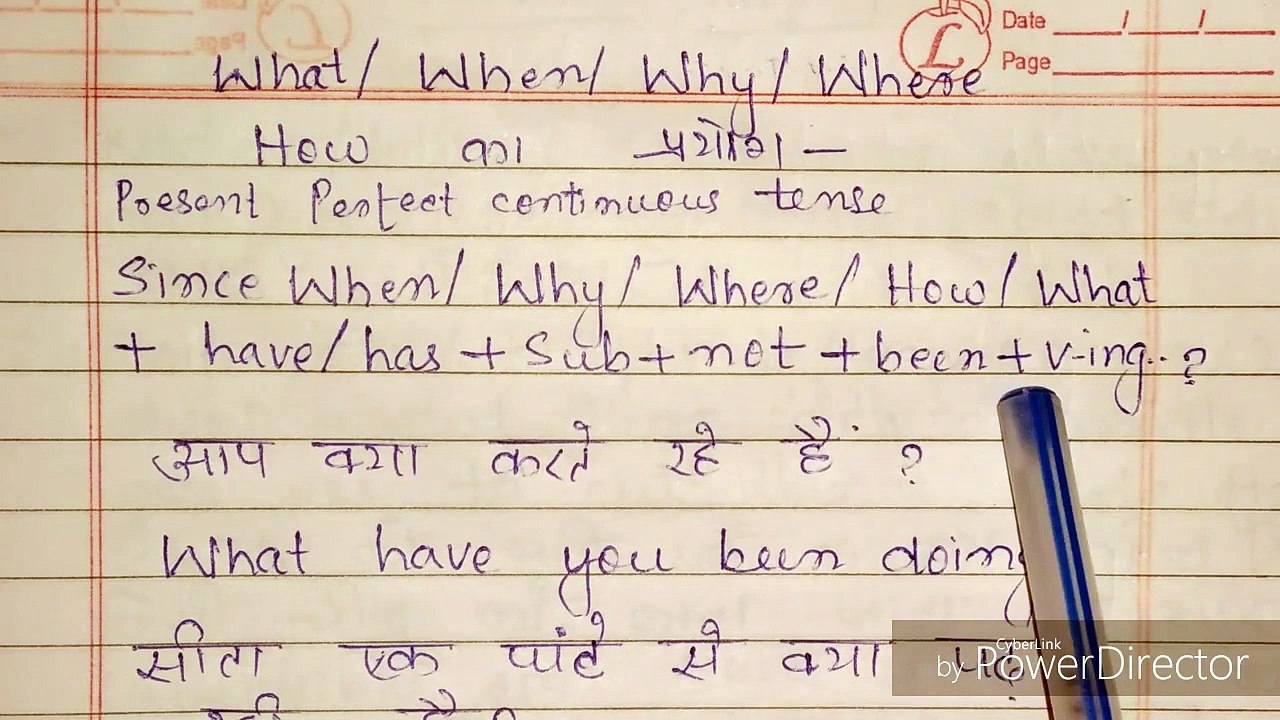 Date / /
Page
What/ When/ Why/ Where
How का प्रयोग —
Present Perfect continuous tense
Since When/ Why/ Where/ How/ What
+ have/has + Sub + not + been + v-ing.. ?
आप क्या करते रहे हैं ?
What have you been doing
सीता एक घंटे से क्या पढ़
CyberLink
by PowerDirector